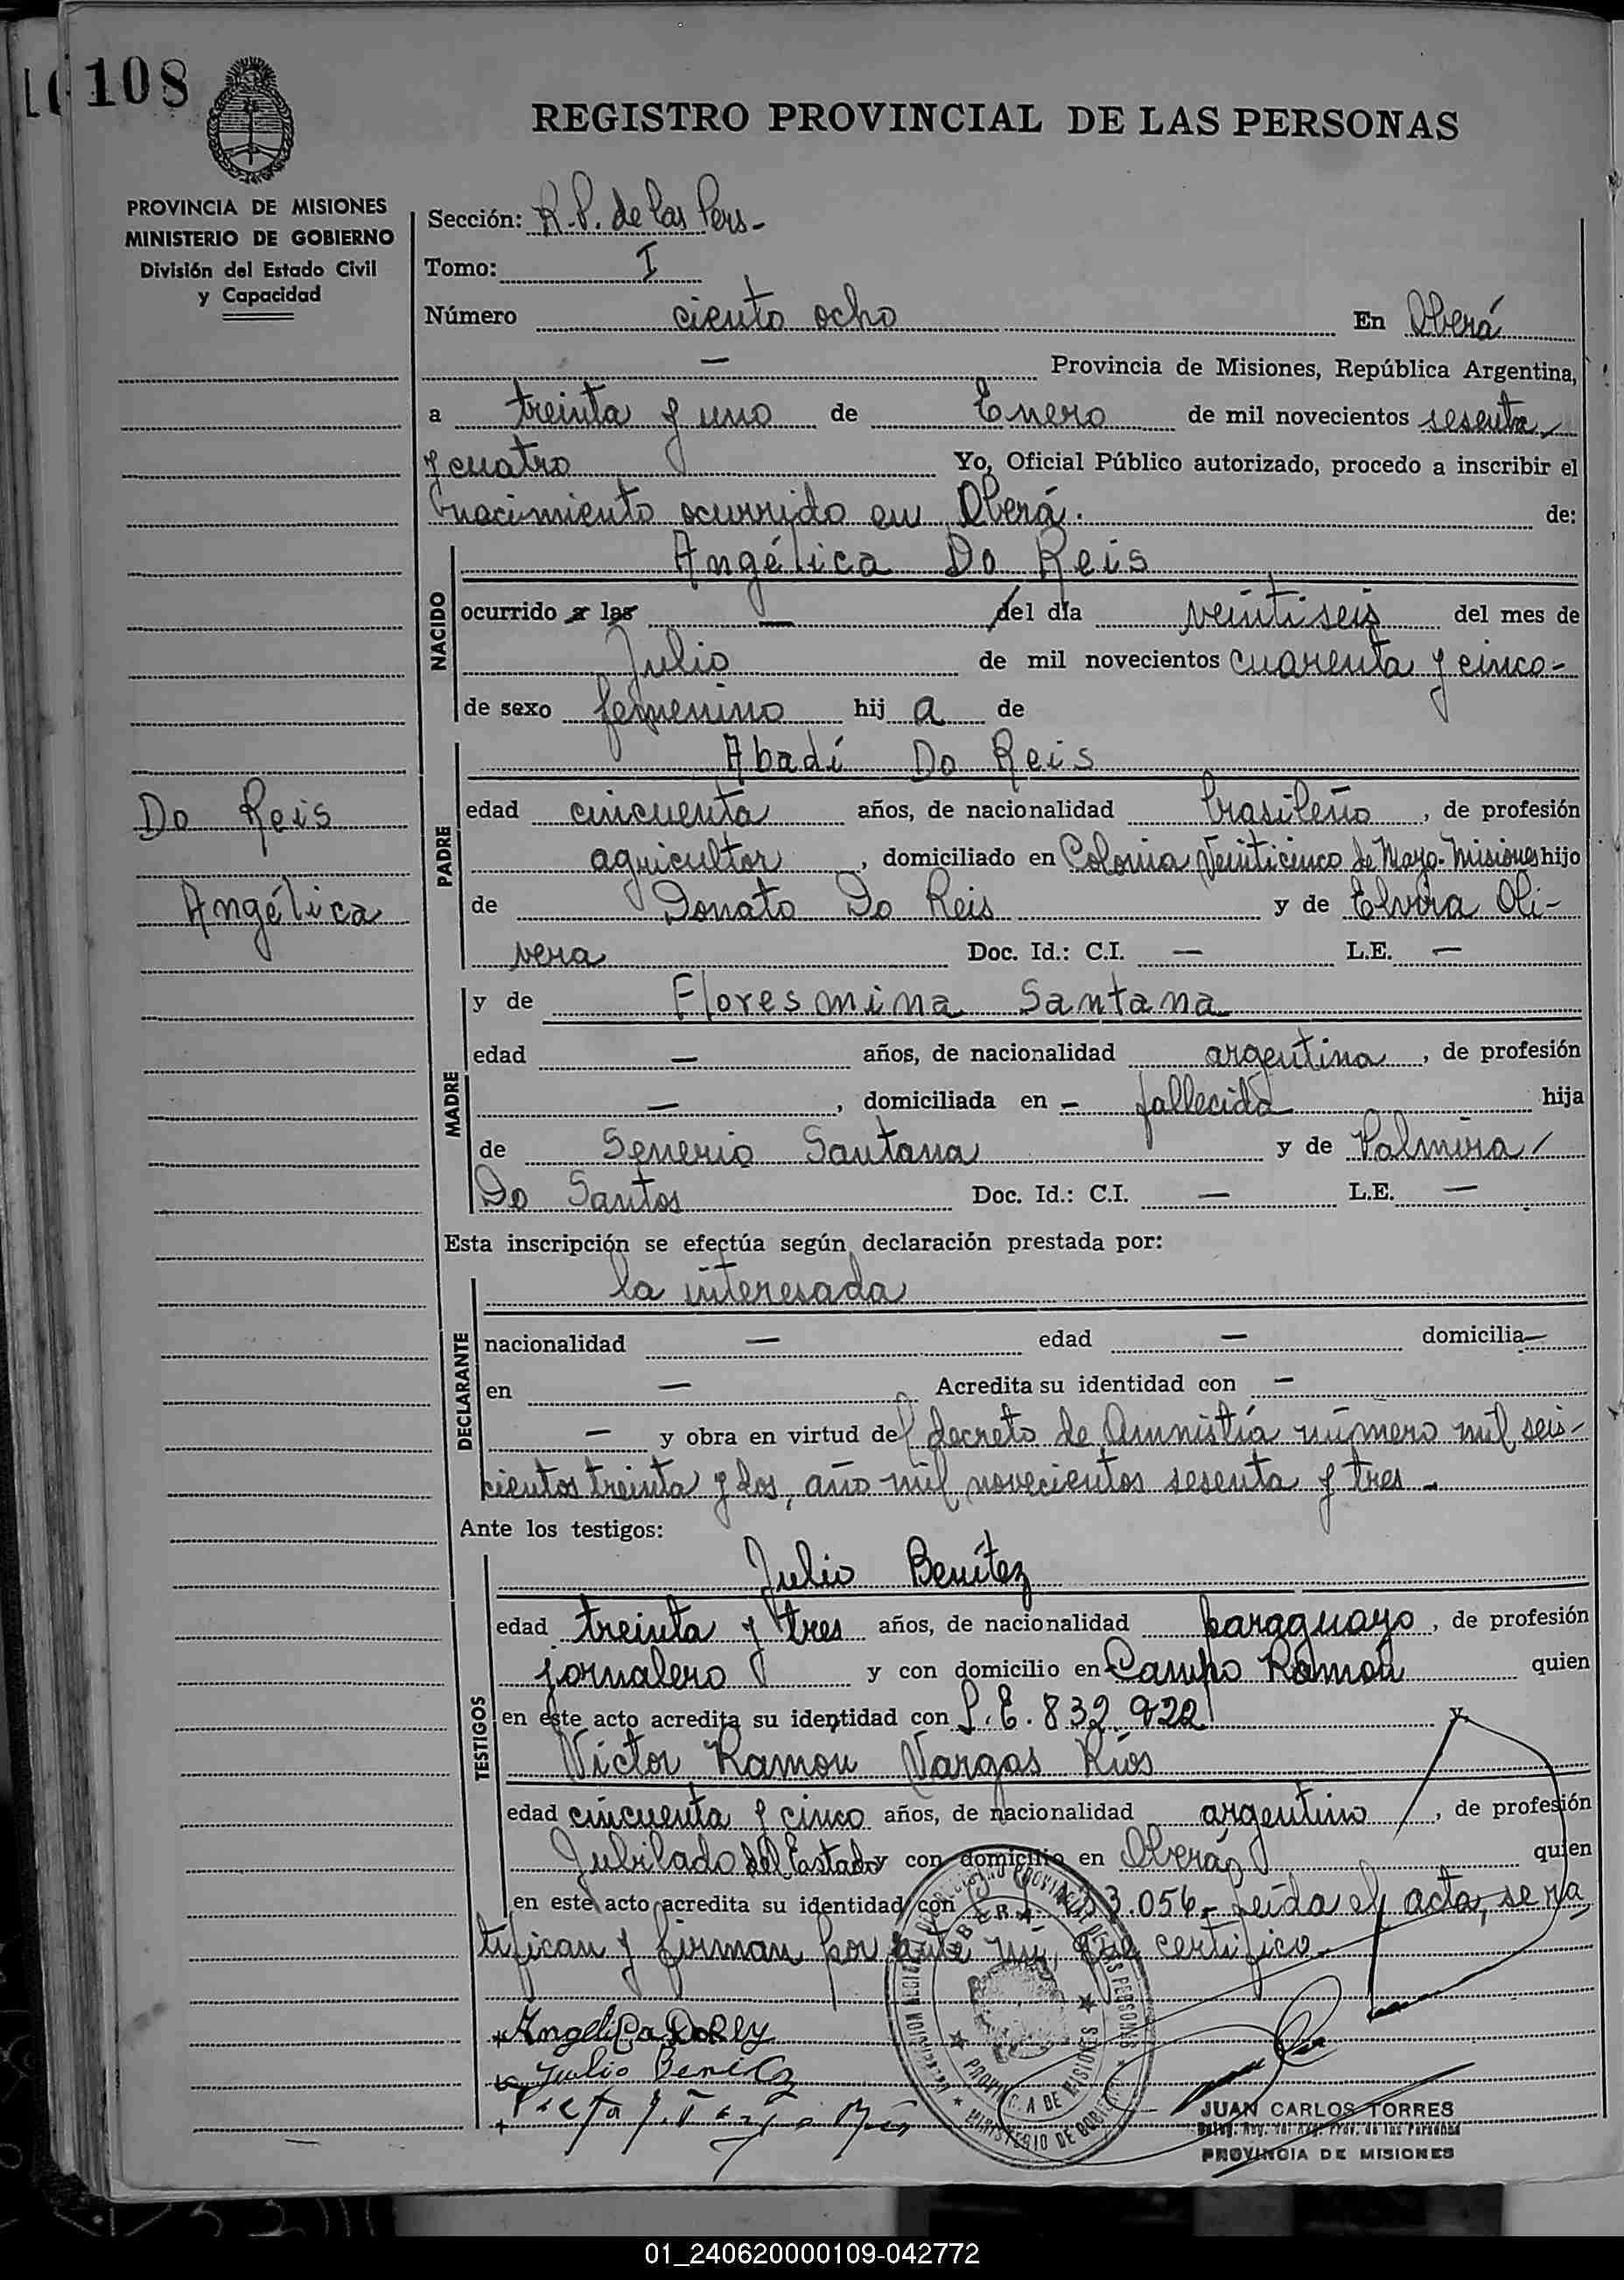 108
REGISTRO PROVINCIAL DE LAS PERSONAS
PROVINCIA DE MISIONES
MINISTERIO DE GOBIERNO
División del Estado Civil
y Capacidad
Sección: R.P. de las Pers-
Tomo: I
Número ciento ocho En Oberá
— Provincia de Misiones, República Argentina,
a treinta y uno de Enero de mil novecientos sesenta
y cuatro Yo, Oficial Público autorizado, procedo a inscribir el
nacimiento ocurrido en Oberá. de:
NACIDO
Angélica Do Reis
ocurrido a las — del día veintiseis del mes de
Julio de mil novecientos cuarenta y cinco-
de sexo femenino hij a de
PADRE
Abadí Do Reis
Do Reis
Angélica
edad cincuenta años, de nacionalidad brasileño, de profesión
agricultor, domiciliado en Colonia Veinticinco de Mayo-Misiones hijo
de Donato Do Reis y de Elvira Oli-
vera Doc. Id.: C.I. — L.E. —
MADRE
y de Floresmina Santana
edad — años, de nacionalidad argentina, de profesión
—, domiciliada en - fallecida hija
de Senerio Santana y de Palmira
Do Santos Doc. Id.: C.I. — L.E. —
Esta inscripción se efectúa según declaración prestada por:
DECLARANTE
la interesada
nacionalidad — edad — domicilia—
en — Acredita su identidad con —
— y obra en virtud del decreto de Amnistía número mil seis-
cientos treinta y dos, año mil novecientos sesenta y tres -
Ante los testigos:
TESTIGOS
Julio Benítez
edad treinta y tres años, de nacionalidad paraguayo, de profesión
jornalero y con domicilio en Campo Ramón quien
en este acto acredita su identidad con 832.922 y
Víctor Ramón Vargas Ríos
edad cincuenta y cinco años, de nacionalidad argentino, de profesión
Jubilado del Estado y con domicilio en Oberá quien
en este acto acredita su identidad con 3.056- Leída el acta, se ra
tifican y firman por ante mí, que certifico.
Angelica Do Rey
Julio Benitez
OBERÁ
PROVINCIA DE MISIONES
MINISTERIO DE GOBIERNO
JUAN CARLOS TORRES
PROVINCIA DE MISIONES
01_240620000109-042772